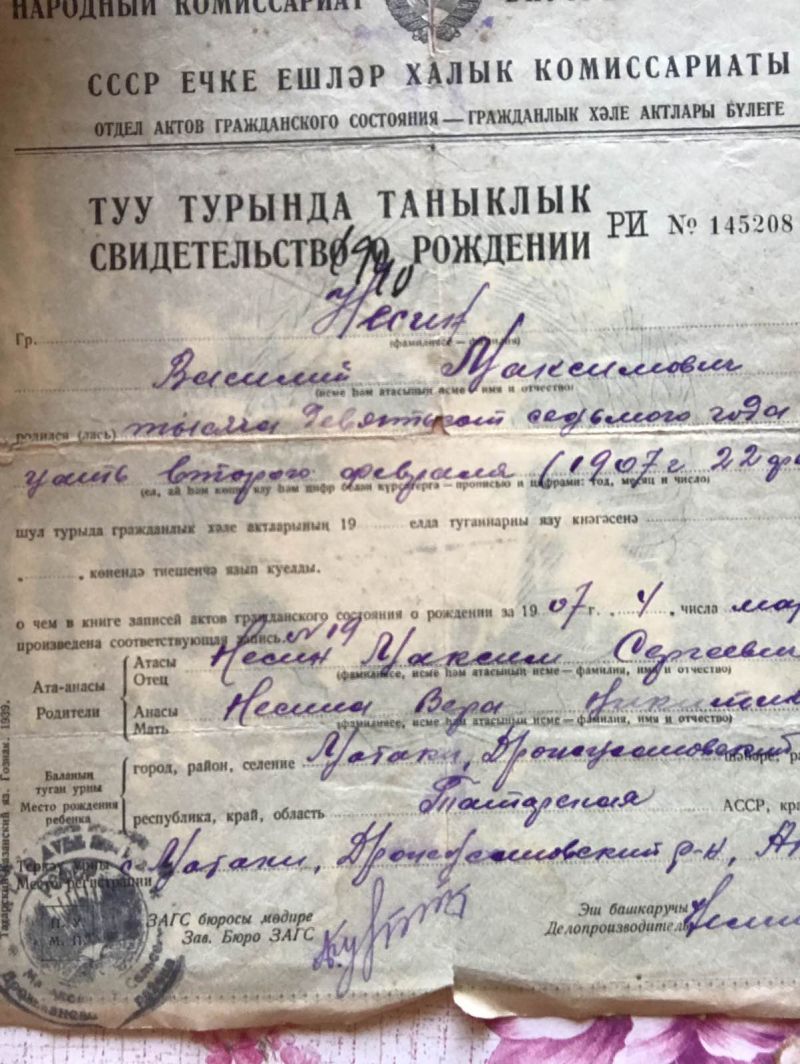 НАРОДНЫЙ КОМИССАРИАТ
СССР ЕЧКЕ ЕШЛӘР ХАЛЫК КОМИССАРИАТЫ
ОТДЕЛ АКТОВ ГРАЖДАНСКОГО СОСТОЯНИЯ — ГРАЖДАНЛЫК ХӘЛЕ АКТЛАРЫ БҮЛЕГЕ
ТУУ ТУРЫНДА ТАНЫКЛЫК
СВИДЕТЕЛЬСТВО О РОЖДЕНИИ
РИ № 145208
Гр. Несин
(фамилиясе — фамилия)
Василий Максимович
(исме һәм атасының исме — имя и отчество)
родился (лась) тысяча девятьсот седьмого года
цать второго февраля (1907 г 22
(ел, ай һәм көне язу һәм цифр белән күрсәтергә — прописью и цифрами: год, месяц и число)
шул турыда гражданлык хәле актларының 19 елда туганнарны язу кнәгәсенә
көнендә тиешенчә язып куелды.
о чем в книге записей актов гражданского состояния о рождении за 1907 г. 4 числа мар
произведена соответствующая запись № 19
Ата-анасы
Родители
Атасы
Отец
Несин Максим Сергеевич
(фамилиясе, исме һәм атасының исме — фамилия, имя и отчество)
Анасы
Мать
Несина Вера Никитич
(фамилиясе, исме һәм атасының исме — фамилия, имя и отчество)
Баланың туган урны
Место рождения ребенка
город, район, селение Матаки, Дрожжановский
республика, край, область Татарская АССР, кра
Место регистрации с Матаки, Дрожжановский р-н,
М. П.
ЗАГС бюросы мөдире
Зав. Бюро ЗАГС
Эш башкаручы
Делопроизводитель
Татарский-казанский яз. Гознак. 1939.